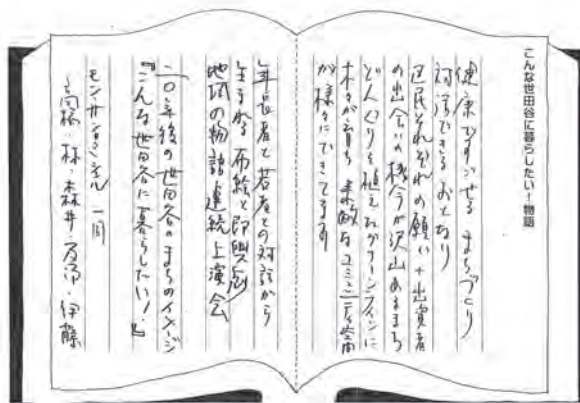 こんな世田谷に暮らしたい！物語
健康ですごせる まちづくり
対話できる おとなり
区民それぞれの願い+出資者
の出会いの機会が沢山あるまち
どんぐりを植えたグリーンラインに
木々が育ち 素敵なコミュニティ空間
が様々にできてます
年長者と若者との対話から
生まれる 布絵と即興劇
地域の物語 連続上演会
二〇年後の世田谷のまちのイメージ
『こんな世田谷に暮らしたい！』
モンサンミッシェル 一同
高橋・林・森井・伊藤